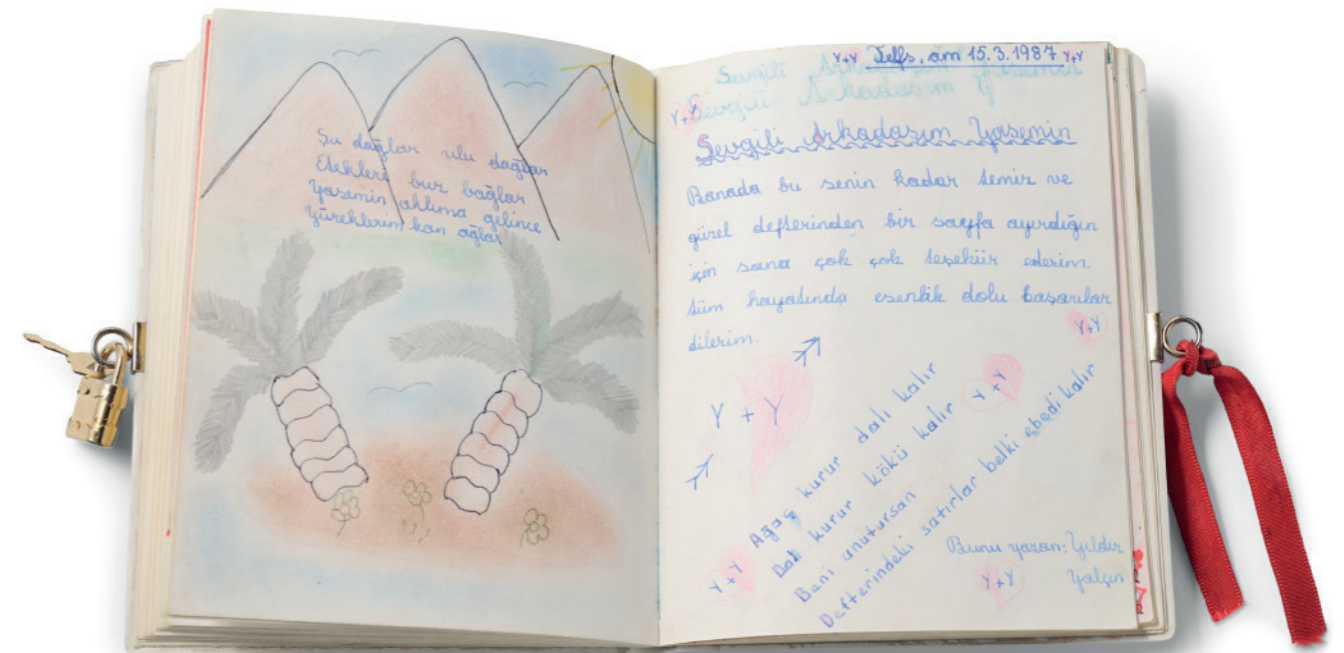 Şu dağlar ulu dağlar
Etekleri bur bağlar
Yasemin aklıma gelince
Yüreklerim kan ağlar
Y+Y Telfs, am 15.3.1987 Y+Y
Sevgili Arkadaşım Yasemin
Sevgili Arkadaşım Y
Y+Y
Sevgili Arkadaşım Yasemin
Banada bu senin kadar temiz ve
güzel defterinden bir sayfa ayırdığın
için sana çok çok teşekür ederim.
tüm hayatında esenlik dolu başarılar
dilerim.
Y+Y
Y + Y
Y+Y
Ağaç kurur dalı kalır
Dalı kurur kökü kalır
Beni unutursan
Defterindeki satırlar belki ebedi kalır
Y+Y
Bunu yazan: Yıldız
Yalçın
Y+Y